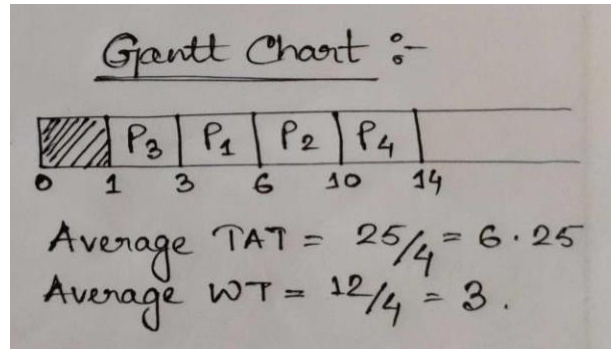 Gantt Chart :-
P3 P1 P2 P4
0 1 3 6 10 14
Average TAT = 25/4 = 6.25
Average WT = 12/4 = 3.